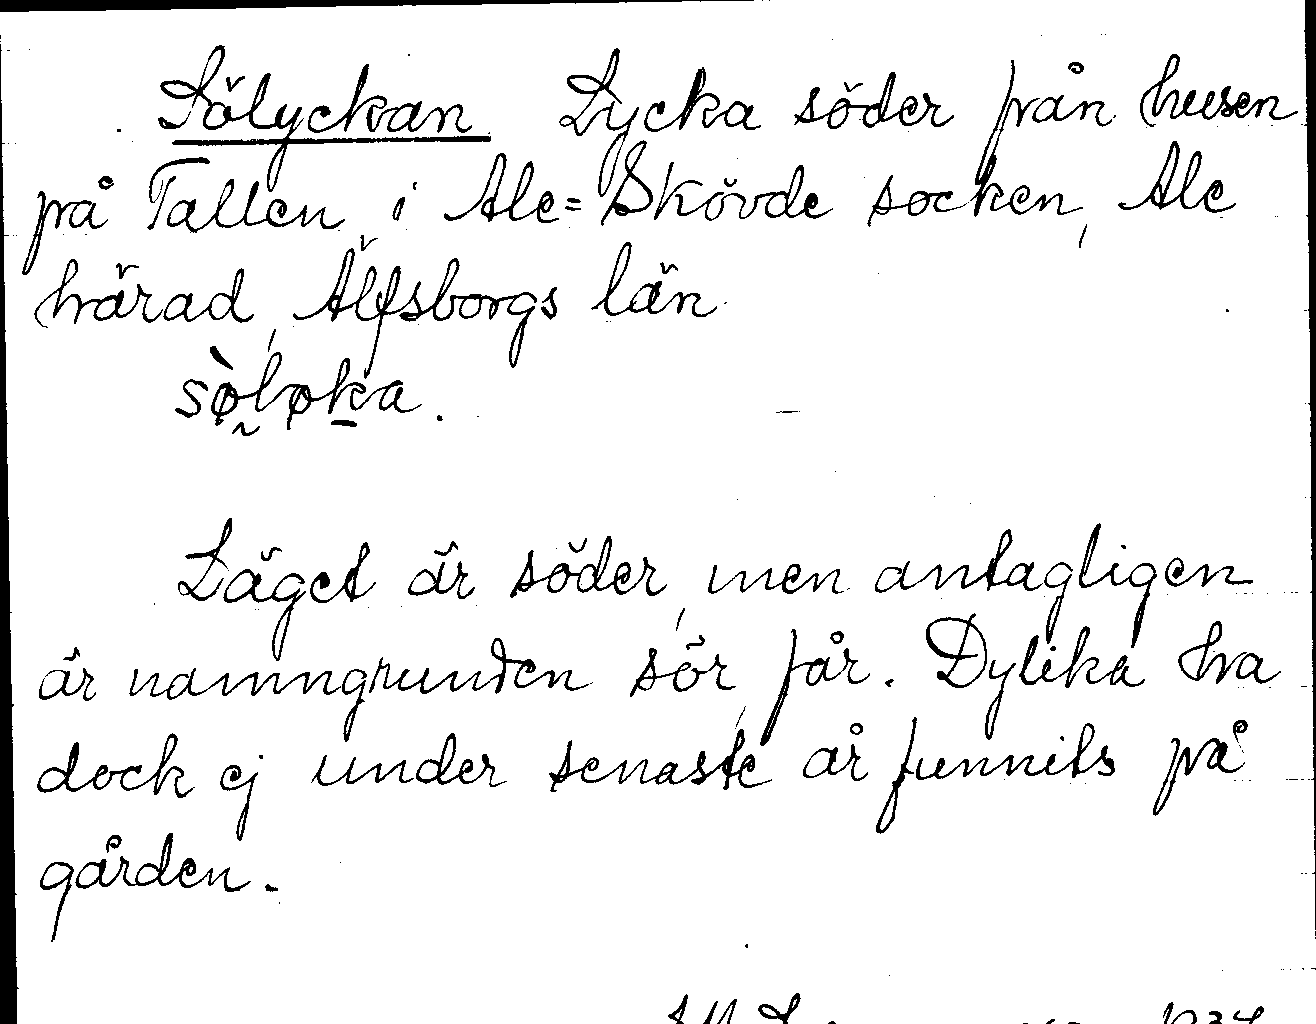 Sölyckan Lycka söder från husen
på Tallen i Ale=Skövde socken, Ale
härad, Älfsborgs län
sø̀løka.
Läget är söder, men antagligen
är namngrunden sör, får. Dylika ha
dock ej under senaste år funnits på
gården.